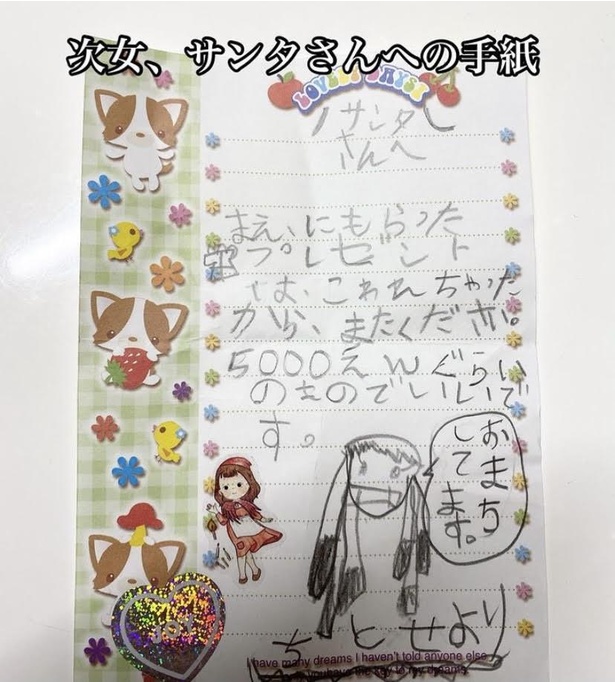 次女、サンタさんへの手紙
LOVELY DAYS!
サンタ
さんへ
まえ、にもらった
プレゼント
は、これれちゃた
から、またください。
5000えんぐらい
のものでいいで
す。
おまち
してます。
JOY
ちとせより
I have many dreams I haven't told anyone else